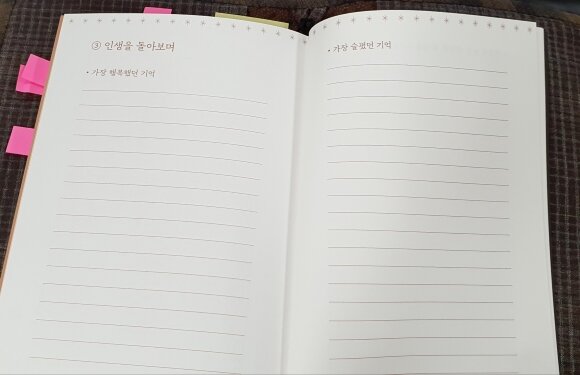 ③ 인생을 돌아보며
• 가장 행복했던 기억
• 가장 슬펐던 기억